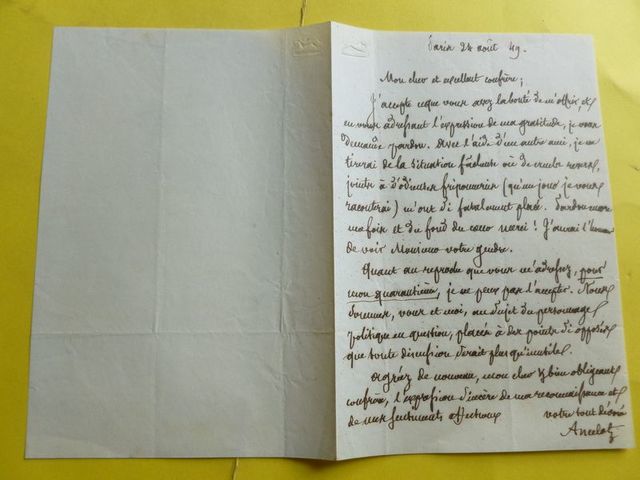 Paris 24 août 49.
Mon cher et excellent confrère;
J'accepte ce que vous avez la bonté de m'offrir, et
en vous adressant l'expression de ma gratitude, je vous
demande pardon. Avec l'aide d'un autre ami, je me
tirerai de la situation fâcheuse où de cruels revers,
joints à d'odieuses friponneries (qu'un jour je vous
raconterai) m'ont si fatalement placé. Pardon encore
ma fois et du fond du cœur merci! J'aurai l'honneur
de voir Monsieur votre gendre.
Quant au reproche que vous m'adressez, pour
mon quarantième, je ne peux pas l'accepter. Nous
sommes, vous et moi, au sujet du personnage
politique en question, placés à des points si opposés
que toute discussion serait plus qu'inutile.
Agréez de nouveau, mon cher & bien obligeant
confrère, l'expression sincère de ma reconnaissance et
de mes sentiments affectueux
votre tout dévoué
Ancelot